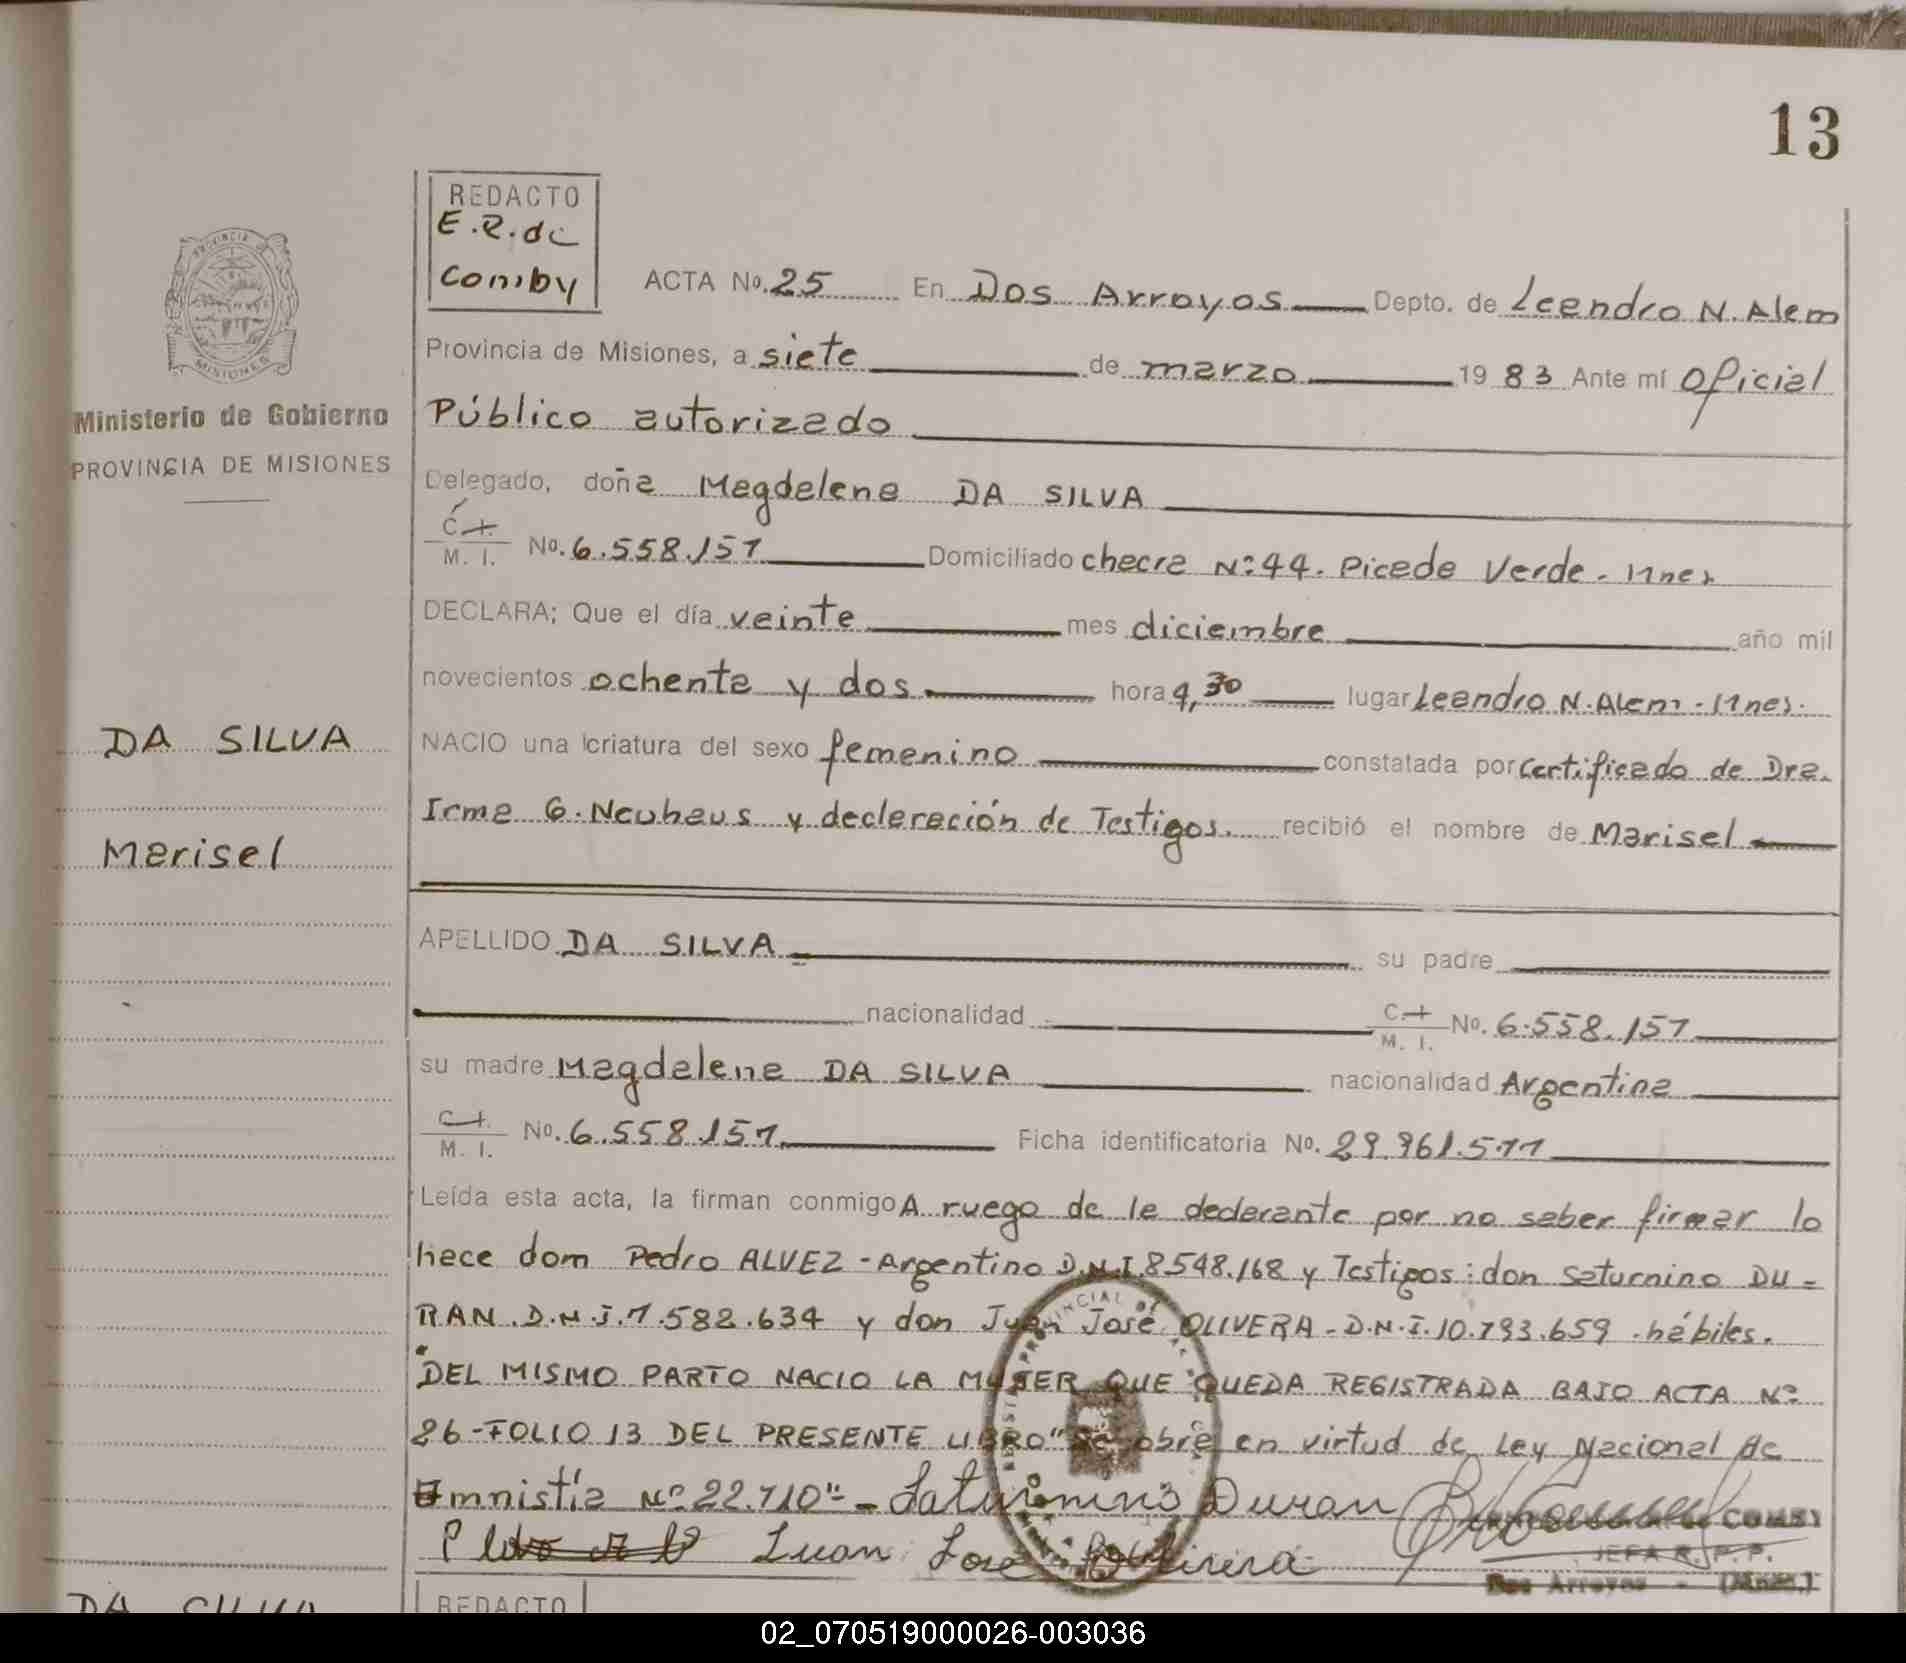 13
REDACTO
E.R.de
Comby
ACTA No. 25 En Dos Arroyos Depto. de Leandro N. Alem
Provincia de Misiones, a siete de marzo 19 83 Ante mí Oficial
Público autorizado
Delegado, doña Magdalena DA SILVA
C.I.
M. I. No. 6.558.157 Domiciliado chacra Nº 44. Picada Verde - Mnes
DECLARA; Que el día veinte mes diciembre año mil
novecientos ochenta y dos hora 4,30 lugar Leandro N. Alem - Mnes.
NACIO una criatura del sexo femenino constatada por certificado de Dra.
Irma G. Neuhaus y declaración de Testigos. recibió el nombre de Marisel
APELLIDO DA SILVA su padre
nacionalidad C.I.
M. I. No. 6.558.157
su madre Magdalena DA SILVA nacionalidad Argentina
C.I.
M. I. No. 6.558.157 Ficha identificatoria No. 29.961.511
Leída esta acta, la firman conmigo A ruego de la declarante por no saber firmar lo
hace dom Pedro ALVEZ - Argentino D.N.I. 8548.168 y Testigos: don Saturnino DU=
RAN. D.N.I. 7.582.634 y don Juan José OLIVERA - D.N.I. 10.793.659 . hábiles.
"DEL MISMO PARTO NACIO LA MUJER QUE QUEDA REGISTRADA BAJO ACTA Nº
26 - FOLIO 13 DEL PRESENTE LIBRO" Se obre en virtud de Ley Nacional de
Amnistía Nº 22.710" - Saturnino Duran
Juan José Oliveira
COMBY
JEFA R. P. P.
Dos Arroyos - (Mnes.)
PROVINCIA DE
MISIONES
Ministerio de Gobierno
PROVINCIA DE MISIONES
DA SILVA
Marisel
DA SILVA
REDACTO
02_070519000026-003036